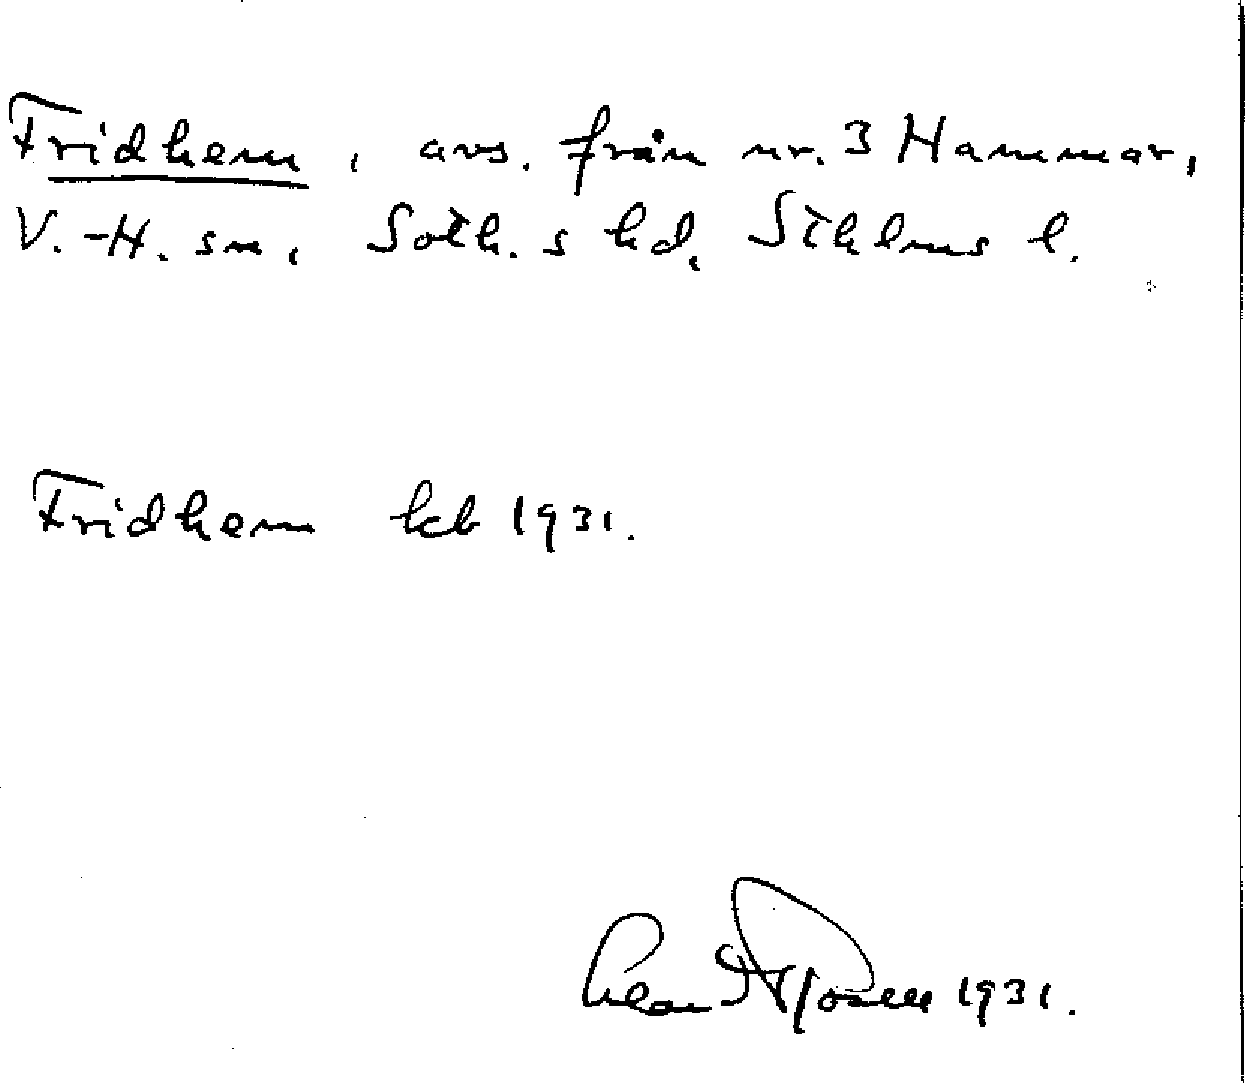 Fridhem, avs. från nr. 3 Hammar,
V.-H. sn, Soth.s hd, Sthlms l.
Fridhem kcb 1931.
1931.